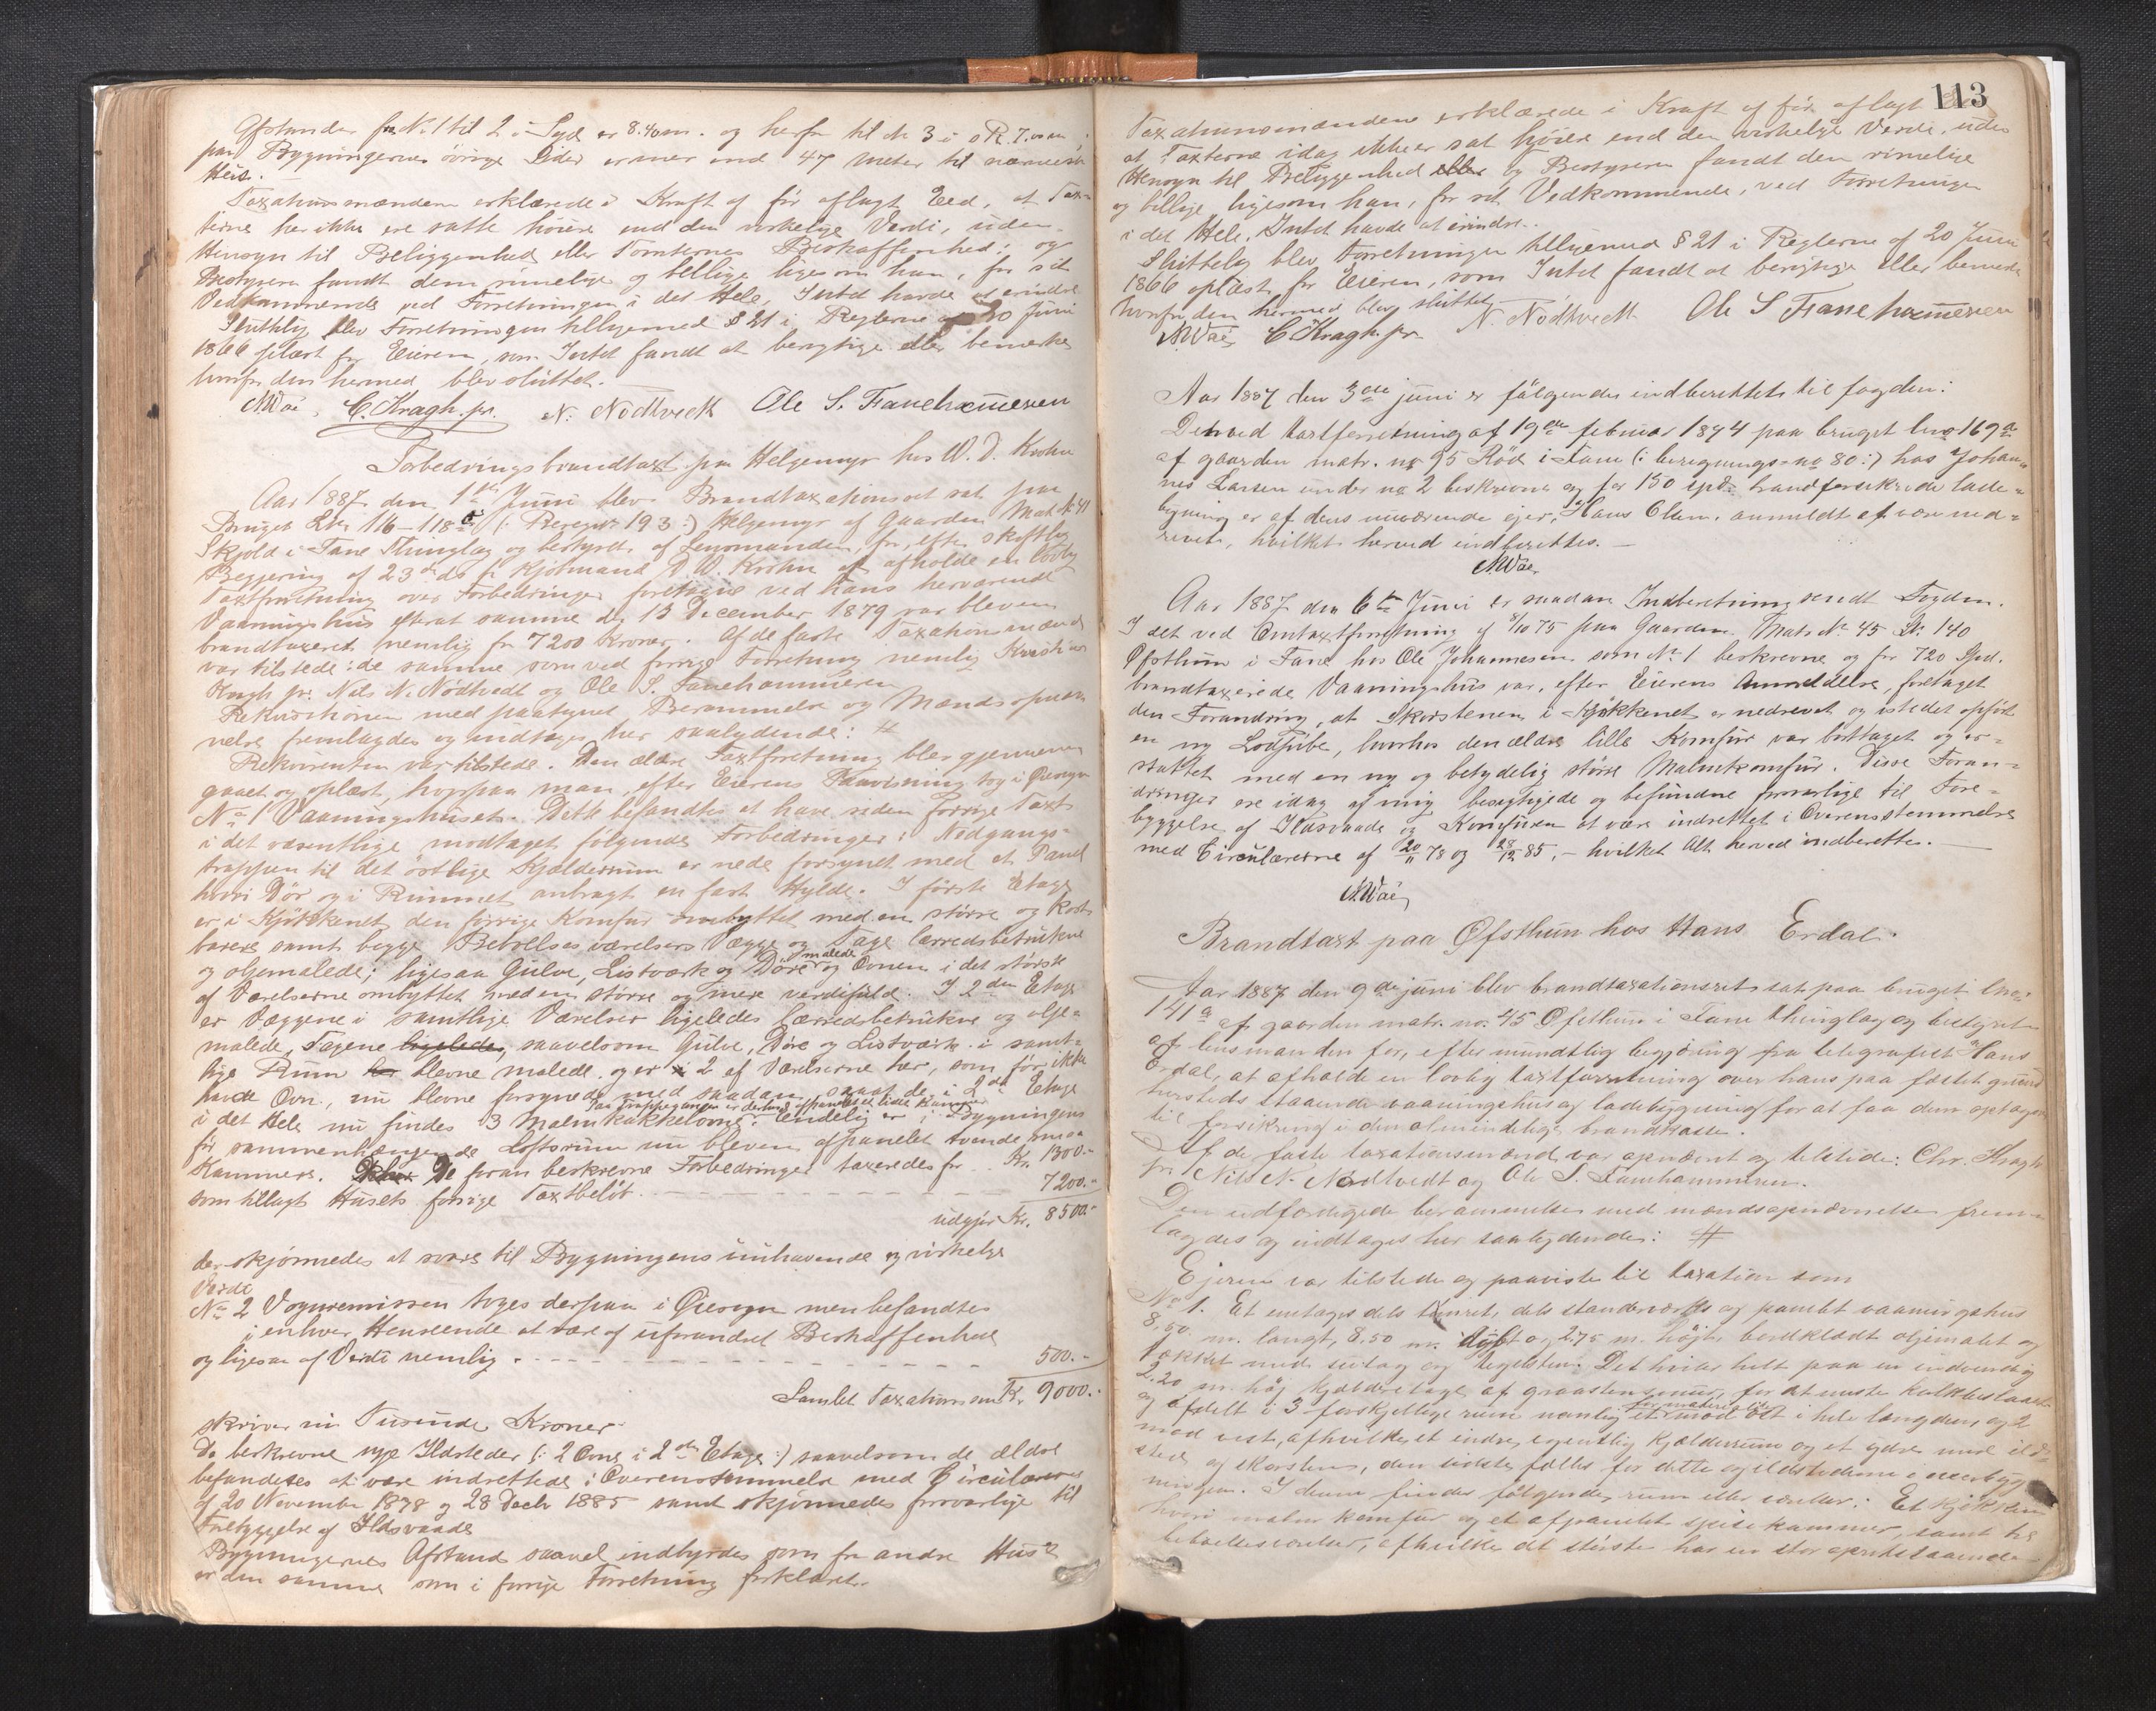 Afstanden fra No 1 til 2 i Syd er 8.40 m. og herfra til No 3 i
paa Bygningernes øvrige Sider er mer end 47 meter til nærmeste
Huse.
Taxationsmændene erklærede i Kraft af før aflagt Eed, at Tax-
terne her ikke ere satte høiere end den virkelige Verdi, uden
Hensyn til Beliggenhed eller Tomternes Beskaffenhed; og
Bestyreren fandt dem rimelige og billige ligesom han, for sit
Vedkommende ved Forretningen i det Hele, Intet havde at erindre
Sluttelig blev Forretningen tilligemed § 21 i Reglerne af 20 Juni
1866 oplæst for Eieren, som Intet fandt at berigtige eller bemerke
hvorfor den hermed blev sluttet.
C. Kragh. pr. N. Nødtvedt Ole S. Fanehammeren
Forbedringsbrandtaxt paa Helgemyr hos W. D. Krohn
Aar 1887 den 1ste Juni blev Brandtaxationsret sat paa
Bruget Lbn 116-118 (: Beregns 193 :) Helgemyr af Gaarden Mat No 41
Skjold i Fane Thinglag og bestyrdt af Lensmanden, for, efter skriftlig
Begjering af 23de ds fra Kjøbmand W. D. Krohn at afholde en lovlig
Taxtforretning over Forbedringer foretagne ved hans herværende
Vaaningshus efterat samme dg 15 December 1879 var bleven
brandtaxeret nemlig for 7200 Kroner. Af de faste Taxationsmænd
var tilstede: de samme som ved forrige Forretning nemlig Kristian
Kragh pr. Nils N. Nødtvedt og Ole S. Fanehammeren
Rekvisitionen med paategnet Berammelse og Mændsopnæv-
nelse fremlagdes og indtages her saalydende: #
Rekvirenten var tilstede. Den ældre Taxtforretning blev gjennem-
gaaet og oplæst, hvorpaa man, efter Eierens Paavisning tog i Øiesyn
No 1 Vaaningshuset. Dette befandtes at have siden forrige Taxt
i det væsentlige modtaget følgende Forbedringer: Nedgangs-
trappen til det østlige Kjælderrum er nede forsynet med et Panel
hvori Dør og i Rummet anbragt en fast Hylde. I første Etage
er i Kjøkkenet den forrige Komfur ombyttet med en større og kost-
barere samt begge Beboelsesværelsers Vægge og Tage lærredsbetrukne
og oljemalede; ligesaa Gulve, Listværk og Døre malede og Ovnen i det største
af Værelserne ombyttet med en større og mere verdifuld. I 2den Etage
er Væggene i samtlige Værelser ligeledes lærredsbetrukne og olje-
malede, Tagene ligeledes, saavelsom Gulve, Døre og Listværk i samt-
lige Rum blevne malede og er 2 af Værelserne her, som før ikke
havde Ovn, nu blevne forsynede med saadan, saaat der i 2den Etage
i det Hele nu findes 3 Malmkakkelovne. Paa Trappegangen er derhos afpanelet et lidet Kammer Endelig er i Bygningens
før sammenhængende Loftsrum nu bleven afpanelet tvende smaa
Kammers. De foran beskrevne Forbedringer taxeredes for Kr. 1300.-
som tillagt Husets forrige Taxtbeløb - - - 7200.-
udgjør Kr. 8500.-
der skjønnedes at svare til Bygningens inhavende og virkelige
Verdi
No 2 Vognremissen toges derpaa i Øiesyn men befandtes
i enhver Henseende at være af uforandret Beskaffenhed
og ligesaa af Verdi nemlig - - - 500.-
Samlet Taxationssum Kr. 9000.-
skriver ni Tusinde Kroner.
De beskrevne nye Ildsteder (: 2 Ovne i 2den Etage :) saavelsom de ældre
befandtes at være indrettede i Overensstemmelse med Circulærerne
af 20 November 1878 og 28 Decbr 1885 samt skjønnedes forsvarlige til
Forebyggelse af Ildsvaade
Bygningernes Afstand saavel indbyrdes som fra andre Huse
er den samme som i forrige Forretning forklaret.
113
Taxationsmændene erklærede i Kraft af før aflagt
at Taxterne idag ikke er sat høiere end den virkelige Verdi, uden
Hensyn til Beliggenhed eller og Bestyreren fandt den rimelige
og billige ligesom han, for sit Vedkommende, ved Forretningen
i det Hele, Intet havde at erindre.
Sluttelig blev Forretningen tilligemed § 21 i Reglerne af 20 Juni
1866 oplæst for Eieren, som Intet fandt at berigtige eller bemerke
hvorfor den hermed blev sluttet.
C. Kragh. pr. N. Nødtvedt Ole S Fanehammeren
Aar 1887 den 3die juni er følgende indberettet til fogden:
Den ved taxtforretning af 19de februar 1874 paa bruget lno 169a
af gaarden matr. no 95 Rød i Fane (: beregnings-no 80 :) hos Johan-
nes Larsen under no 2 beskrevne og for 150 spd. brandforsikrede lade-
bygning er af dens nuværende ejer, Hans Olsen, anmeldt at være ned-
revet, hvilket herved indberettes. -
Aar 1887 den 6te Juni er saadan Indberetning sendt Fogden.
I det ved Omtaxtforretning af 8/10 75 paa Gaarden Matr No 45 Lb 140
Øfsthun i Fane hos Ole Johannesen som No 1 beskrevne og for 720 Spd.
brandtaxerede Vaaningshus var, efter Eierens Anmeldelse, foretaget
den Forandring, at Skorstenen i Kjøkkenet er nedrevet og istedet opført
en ny Lodpibe, hvorhos den ældre lille Komfur var bortaget og er-
stattet med en ny og betydelig større Malmkomfur. Disse Foran-
dringer ere idag af mig besigtigede og befundne forsvarlige til Fore-
byggelse af Ildsvaade og Komfuren at være indrettet i Overensstemmelse
med Circulærerne af 20/11 78 og 28/12 85, - hvilket Alt herved indberettes.
Brandtaxt paa Øfsthun hos Hans Erdal.
Aar 1887 den 9de juni blev brandtaxationsret sat paa bruget lno.
141a af gaarden matr. no. 45 Øfsthun i Fane thinglag og bestyret
af lensmanden for, efter mundtlig begjæring fra telegrafist Hans
Erdal, at afholde en lovlig taxtforretning over hans paa fæstet grund
hersteds staaende vaaningshus og ladebygning for at faa dem optagen
til forsikring i den almindelige brandkasse.
Af de faste taxationsmænd var opnævnt og tilstede: Chr. Kragh
pr. Nils N. Nødtvedt og Ole S. Fanehammeren.
Den udfærdigede berammelse med mændsopnævnelse frem-
lagdes og indtages her saalydende: #
Ejeren var tilstede og paaviste til taxation som
No 1. Et enetages dels tømret, dels standerværks og panelt vaaningshus
8,50 m. langt, 8,50 m. dybt og 2,75 m. højt, bordklædt oljemalet og
tækket med sutag og tegelsten. Det hviler helt paa en indvendig
2.20 m. høj kjælderetage af graastensmur, for det meste kalkbeslaaet
og afdelt i 3 forskjellige rum nemlig et mod øst i hele længden og 2
mod vest, af hvilke et indre, egentlig kjælderrum og et ydre med ild-
sted og skorsten, den sidste fælles for dette og ildstederne i overbyg-
ningen. I denne findes følgende rum eller værelser: Et kjøkken
hvori malmkomfur og et afpanelet spisekammer, samt tre
beboelsesværelser, af hvilke det største har en stor opretstaaende